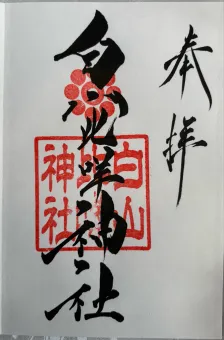 奉拝
白山比咩神社
白山
神社